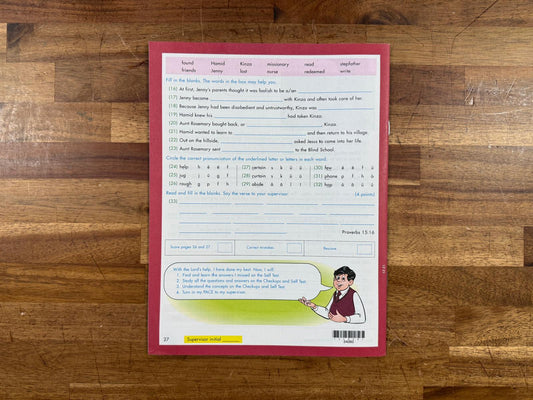 found Hamid Kinza missionary read stepfather
friends Jenny lost nurse redeemed write
Fill in the blanks. The words in the box may help you.
(16) At first, Jenny's parents thought it was foolish to be a/an
(17) Jenny became with Kinza and often took care of her.
(18) Because Jenny had been disobedient and untrustworthy, Kinza was
(19) Hamid knew his had taken Kinza.
(20) Aunt Rosemary bought back, or Kinza.
(21) Hamid wanted to learn to and then return to his village.
(22) Out on the hillside, asked Jesus to come into her life.
(23) Aunt Rosemary sent to the Blind School.
Circle the correct pronunciation of the underlined letter or letters in each word.
(24) help (27) certain s k (30) few
(25) jug j g f (28) curtain s k (31) phone p f h
(26) rough g p f h (29) abide (32) hop
Read and fill in the blanks. Say the verse to your supervisor. (4 points)
(33)
Proverbs 15:16
Score pages 26 and 27. Correct mistakes. Rescore.
With the Lord's help, I have done my best. Now, I will
1. Find and learn the answers I missed on the Self Test.
2. Study all the questions and answers on the Checkups and Self Test.
3. Understand the concepts on the Checkups and Self Test.
4. Turn in my PACE to my supervisor.
27 Supervisor initial